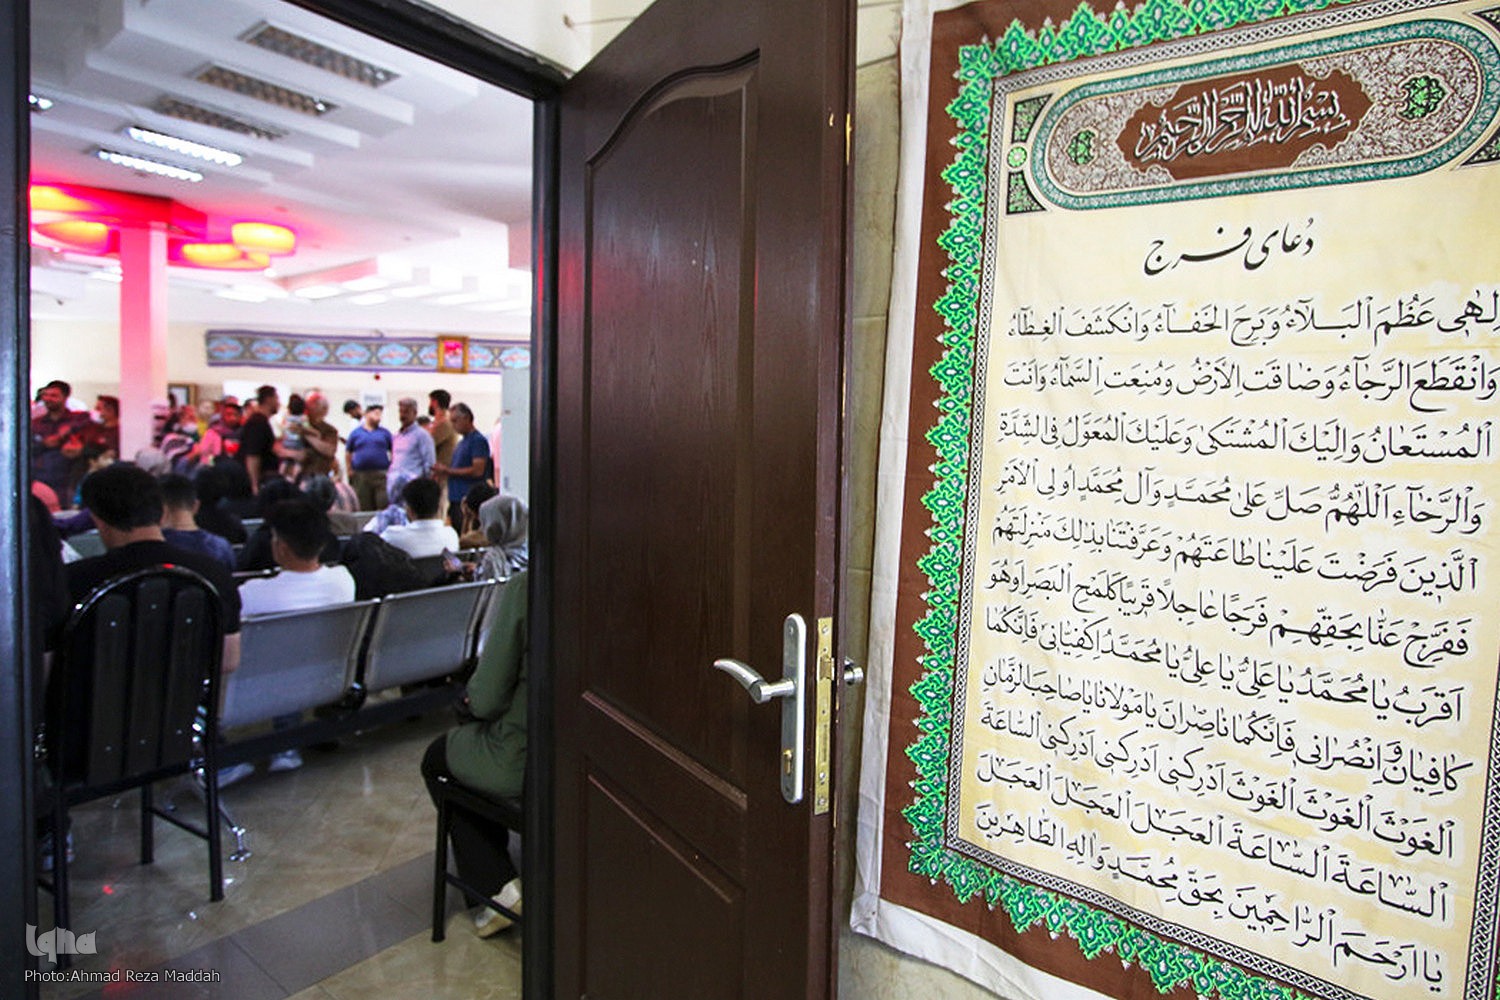 بِسْمِ اللهِ الرَّحْمنِ الرَّحیمِ
دُعای فرج
اِلٰهٖی عَظُمَ الْبَلٰآءُ وَبَرِحَ الْخَفٰآءُ وَانْکَشَفَ الْغِطٰآءُ
وَانْقَطَعَ الرَّجٰآءُ وَضٰاقَتِ الْاَرْضُ وَمُنِعَتِ السَّمٰآءُ وَاَنْتَ
الْمُسْتَعٰانُ وَاِلَیْکَ الْمُشْتَکیٰ وَعَلَیْکَ الْمُعَوَّلُ فِی الشِّدَّةِ
وَالرَّخٰآءِ اَللّٰهُمَّ صَلِّ عَلیٰ مُحَمَّدٍ وَآلِ مُحَمَّدٍ اُولِی الْاَمْرِ
الَّذٖینَ فَرَضْتَ عَلَیْنٰا طٰاعَتَهُمْ وَعَرَّفْتَنٰا بِذٰلِکَ مَنْزِلَتَهُمْ
فَفَرِّجْ عَنّٰا بِحَقِّهِمْ فَرَجًا عٰاجِلًا قَرٖیبًا کَلَمْحِ الْبَصَرِ اَوْ هُوَ
اَقْرَبُ یٰا مُحَمَّدُ یٰا عَلِیُّ یٰا عَلِیُّ یٰا مُحَمَّدُ اِکْفِیٰانٖی فَاِنَّکُمٰا
کٰافِیٰانِ وَانْصُرٰانٖی فَاِنَّکُمٰا نٰاصِرٰانِ یٰا مَوْلٰانٰا یٰا صٰاحِبَ الزَّمٰانِ
الْغَوْثَ الْغَوْثَ الْغَوْثَ اَدْرِکْنٖی اَدْرِکْنٖی اَدْرِکْنٖی السّٰاعَةَ
السّٰاعَةَ السّٰاعَةَ الْعَجَلَ الْعَجَلَ الْعَجَلَ
یٰا اَرْحَمَ الرّٰاحِمٖینَ بِحَقِّ مُحَمَّدٍ وَآلِهِ الطّٰاهِرٖینَ
Iqna
Photo:Ahmad Reza Maddah